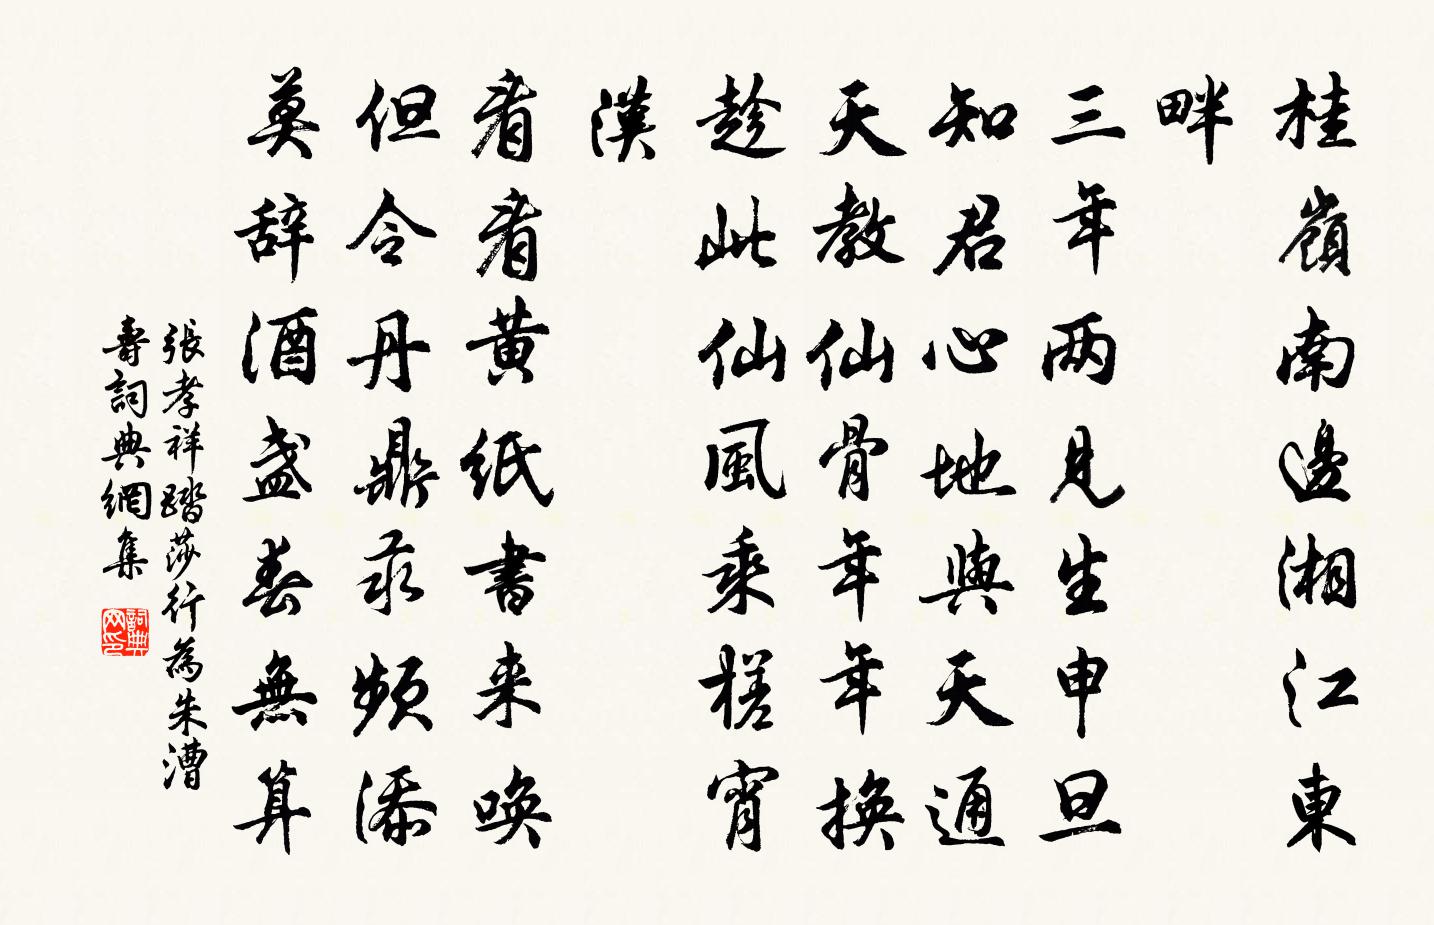 桂嶺南邊湘江東
畔
三年两見生申旦
知君心地與天通
天教仙骨年年換
趁此仙風乘槎宵
漢
看看黄紙書来喚
但令丹鼎汞頻添
莫辞酒盞春無算
張孝祥踏莎行為朱漕
壽詞典網集
詞典
网印